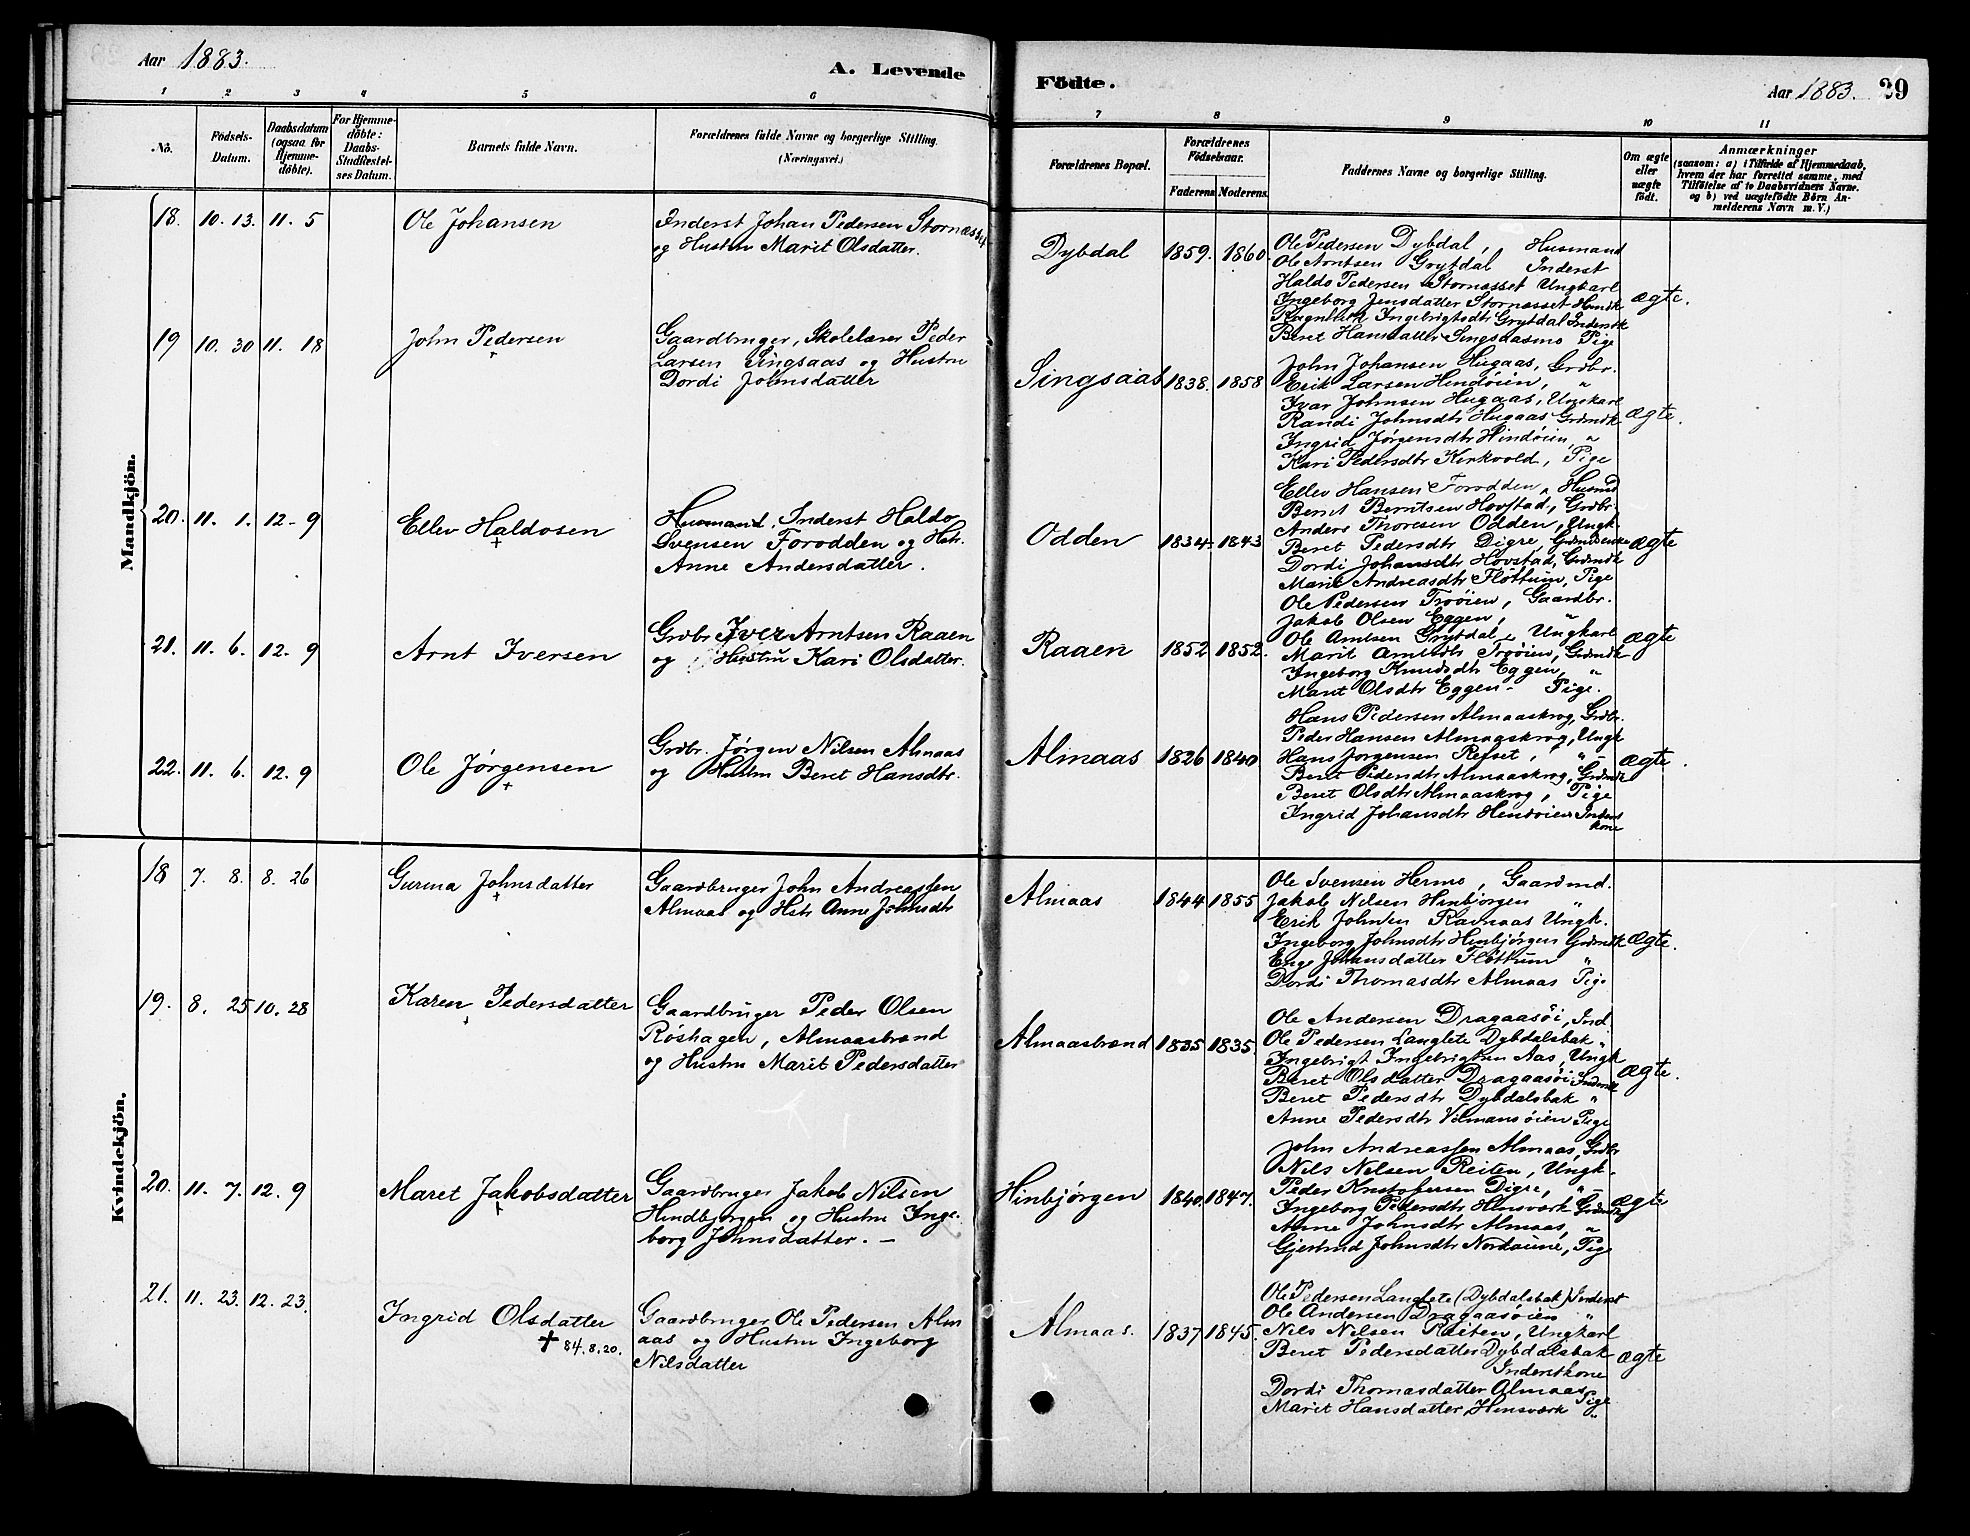 Aar 1883.
A. Levende
1 2 3 4 5 6
No.
Födsels-
Datum.
Daabsdatum
(ogsaa for
Hjemme-
döbte).
For Hjemme-
döbte:
Daabs-
Stadfæstel-
ses Datum.
Barnets fulde Navn.
Forældrenes fulde Navne og borgerlige Stilling.
(Næringsvei.)
Mandkjön.
18. 10. 13. 11. 5 Ole Johansen
Inderst Johan Pedersen Stornæsset
og Hustru Marit Olsdatter.
19 10. 30 11. 18 John Pedersen
Gaardbruger, Skolelærer Peder
Larsen Singsaas og Hustru
Dordi Johnsdatter
20. 11. 1. 12. 9 Ellev Haldosen
Husmand, Inderst Haldo
Svensen Forodden og Hstr.
Anne Andersdatter.
21. 11. 6. 12. 9 Arnt Iversen
Grdbr Iver Arntsen Raaen
og Hustru Kari Olsdatter.
22. 11. 6. 12. 9 Ole Jørgensen
Grdbr. Jørgen Nilsen Almaas
og Hustru Beret Hansdtr.
Kvindekjön.
18 7. 8. 8. 26 Gurina Johnsdatter
Gaardbruger John Andreassen
Almaas og Hstr Anne Johnsdtr
19. 8. 25 10. 28 Karen Pedersdatter
Gaardbruger Peder Olsen
Røshagen, Almaasbrænd
og Hustru Marit Pedersdatter
20. 11. 7. 12. 9 Maret Jakobsdatter
Gaardbruger Jakob Nilsen
Hindbjørgen og Hustru Inge-
borg Johnsdatter. -
21. 11. 23. 12. 23. Ingrid Olsdatter
† 84. 8. 20.
Gaardbruger Ole Pedersen Alm
aas og Hustru Ingeborg
Nilsdatter
Födte.
Aar 1883. 29
7 8 9 10 11
Forældrenes Bopæl.
Forældrenes
Födselsaar.
Faderens Moderens.
Faddernes Navne og borgerlige Stilling.
Om ægte
eller
uægte
født.
Anmærkninger
(saasom: a) i Tilfælde af Hjemmedaab,
hvem der har forrettet samme, med
Tilföielse af to Daabsvidners Navne.
og b) ved uægtefödte Börn An-
melderens Navn m. V.)
Dybdal 1859. 1860. ægte.
Ole Pedersen Dybdal, Husmand
Ole Arntsen Grytdal Inderst
Haldo Pedersen Stornæsset Ungkarl
Ingeborg Jensdatter Stornæsset Hmdk
Ingebrigtsdtr Grytdal Inderstk
Beret Hansdatter Singsdasmo Pige
Singsaas 1838. 1858 ægte.
John Johansen Hugaas, Grdbr.
Erik Larsen Hindøien, "
Ivar Johnsen Hugaas, Ungkarl
Randi Johnsdtr Hugaas Grdmdk
Ingrid Jørgensdtr Hindøien, "
Kari Pedersdtr Kirkvold, Pige
Odden 1834. 1843 ægte
Ellev Hansen Forodden, Husmd
Bernt Berntsen Hovstad, Grdbr.
Anders Thoresen Odden, Ungk.
Beret Pedersdtr Digre, Grdmdenke
Dordi Johansdtr Hovstad, Grdmdk
Marit Andreasdtr Fløttum, Pige
Raaen 1852 1852. ægte
Ole Pedersen Trøøien, Gaardbr.
Jakob Olsen Eggen, "
Ole Arntsen Grytdal, Ungkarl
Marit Arntsdtr Trøøien, Grdmdk
Ingeborg Knudsdtr Eggen, "
Maret Olsdtr Eggen - Pige.
Almaas 1826 1840 ægte.
Hans Pedersen Almaaskrog, Grdbr.
Peder Hansen Almaaskrog, Ungk
Hans Jørgensen Refset, "
Beret Pedersdtr Almaaskrog, Grdmdk
Beret Olsdtr Almaaskrog, Pige
Ingrid Johansdtr Hindøien Inderst
kone
Almaas 1844 1855 ægte.
Ole Svensen Hermo, Gaardmd.
Jakob Nilsen Hinbjørgen "
Erik Johnsen Ravnaas Ungk.
Ingeborg Johnsdtr Hinbjørgen Grdmdk
Enge Johansdatter Fløttum "
Dordi Thomasdtr Almaas Pige
Almaasbrænd 1835 1835. ægte.
Ole Andersen Dragaasøi, Ind
Ole Pedersen Langlete Dybdalsbak "
Ingebrigt Ingebrigtsen Aas, Ungk
Beret Olsdatter Dragaasøi Inderstk
Beret Pedersdtr Dybdalsbak "
Anne Pedersdtr Vilmansøien Pige
Hinbjørgen 1840. 1847. ægte
John Andreassen Almaas, Grdbr
Nils Nilsen Reiten, Ungk.
Peder Kristofersen Digre, "
Ingeborg Pedersdtr Hinsværk Grdmdk
Anne Johnsdtr Almaas, "
Gjertrud Johnsdtr Nordaune, Pige
Almaas. 1837 1845. ægte
Ole Pedersen Langlete (Dybdalsbak) Inderst
Ole Andersen Dragaasøien "
Nils Nilsen Reiten, Ungkarl
Beret Pedersdatter Dybdalsbak
Inderstkone
Dordi Thomasdatter Almaas Pige
Marit Hansdatter Hinsværk "